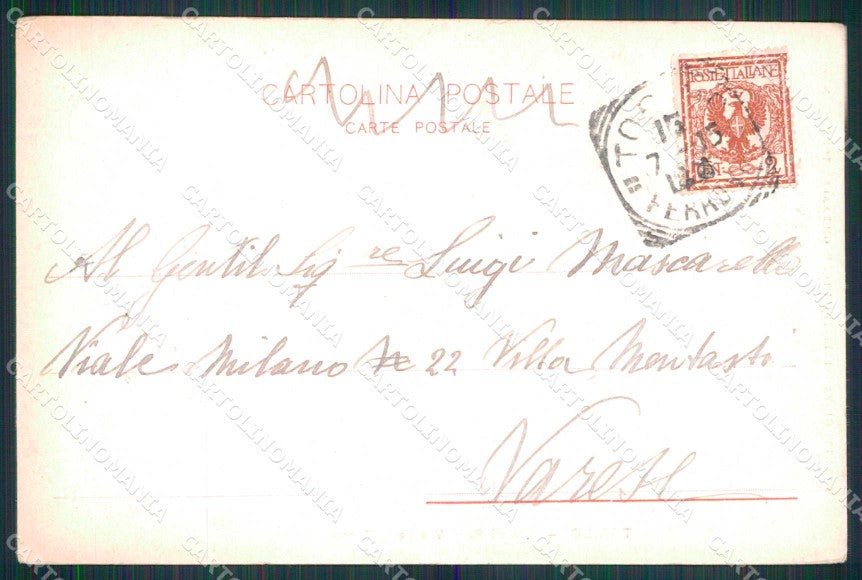 CARTOLINA POSTALE
CARTE POSTALE
POSTE ITALIANE
15
7
FERRO
Al Gentil Sig.re Luigi Mascarello
Viale Milano N° 22 Villa Montasti
Varese
CARTOLINOMANIA